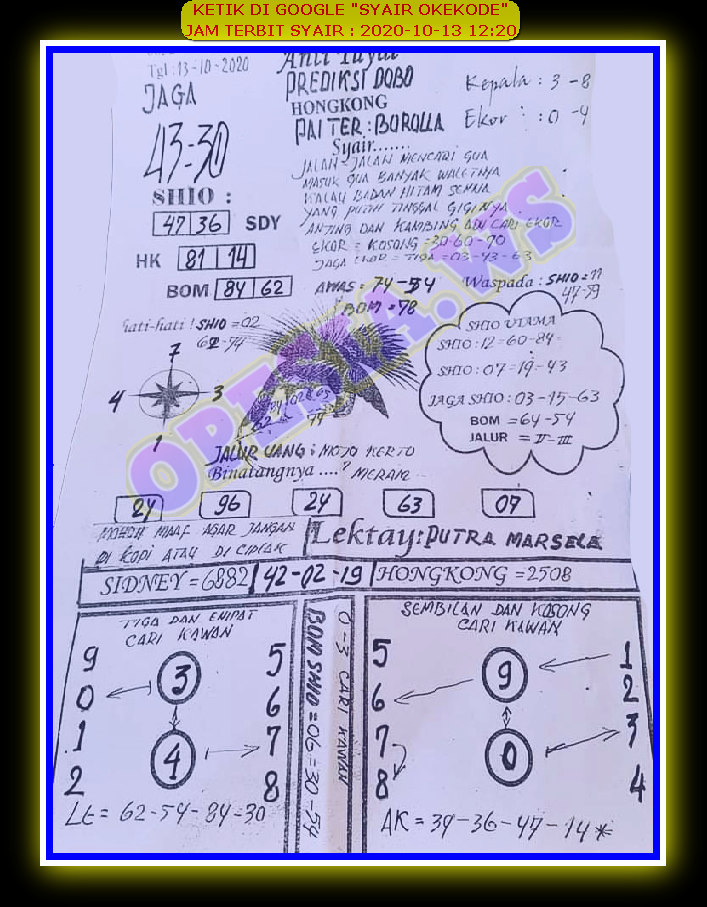 KETIK DI GOOGLE "SYAIR OKEKODE"
JAM TERBIT SYAIR : 2020-10-13 12:20
Tgl : 13-10-2020
JAGA
43-30
SHIO :
47 36 SDY
HK 81 14
BOM 84 62
PREDIKSI DOBO
HONGKONG
PAITER : BOROLLA
Syair.......
Kepala : 3 - 8
Ekor : 0 - 4
JALAN-JALAN MENCARI GUA
MASUK GUA BANYAK WALETNYA
KALAU BADAN HITAM SEMUA
YANG PUTIH TINGGAL GIGINYA
ANJING DAN KAMBING CARI EKOR
EKOR = KOSONG = 30-60-70
JAGA EKOR = TIGA = 03-43-63
AWAS = 74-54
BOM = 78
Waspada : SHIO = 11
47-59
hati-hati ! SHIO = 02
62-74
7
4 3
1
SHIO UTAMA
SHIO : 12 = 60-84 =
SHIO : 07 = 19-43
JAGA SHIO : 03-15-63
BOM = 64-54
JALUR = II-III
OPESIA.WS
JALUR UANG : MOJO KERTO
Binatangnya ....? MERAK
24 96 24 63 07
MOHON MAAF AGAR JANGAN
DI KOPI ATAU DI CIPLAK
Lektay: PUTRA MARSELA
SIDNEY = 6882 42-02-19 HONGKONG = 2508
TIGA DAN EMPAT
CARI KAWAN
9 5
0 3 6
1 4 7
2 8
LE = 62-54-84-30
0-3 CARI KAWAN
BOM SHIO = 06 = 30-54
SEMBILAN DAN KOSONG
CARI KAWAN
5 9 1
6 2
7 0 3
8 4
AK = 39-36-47-14 *